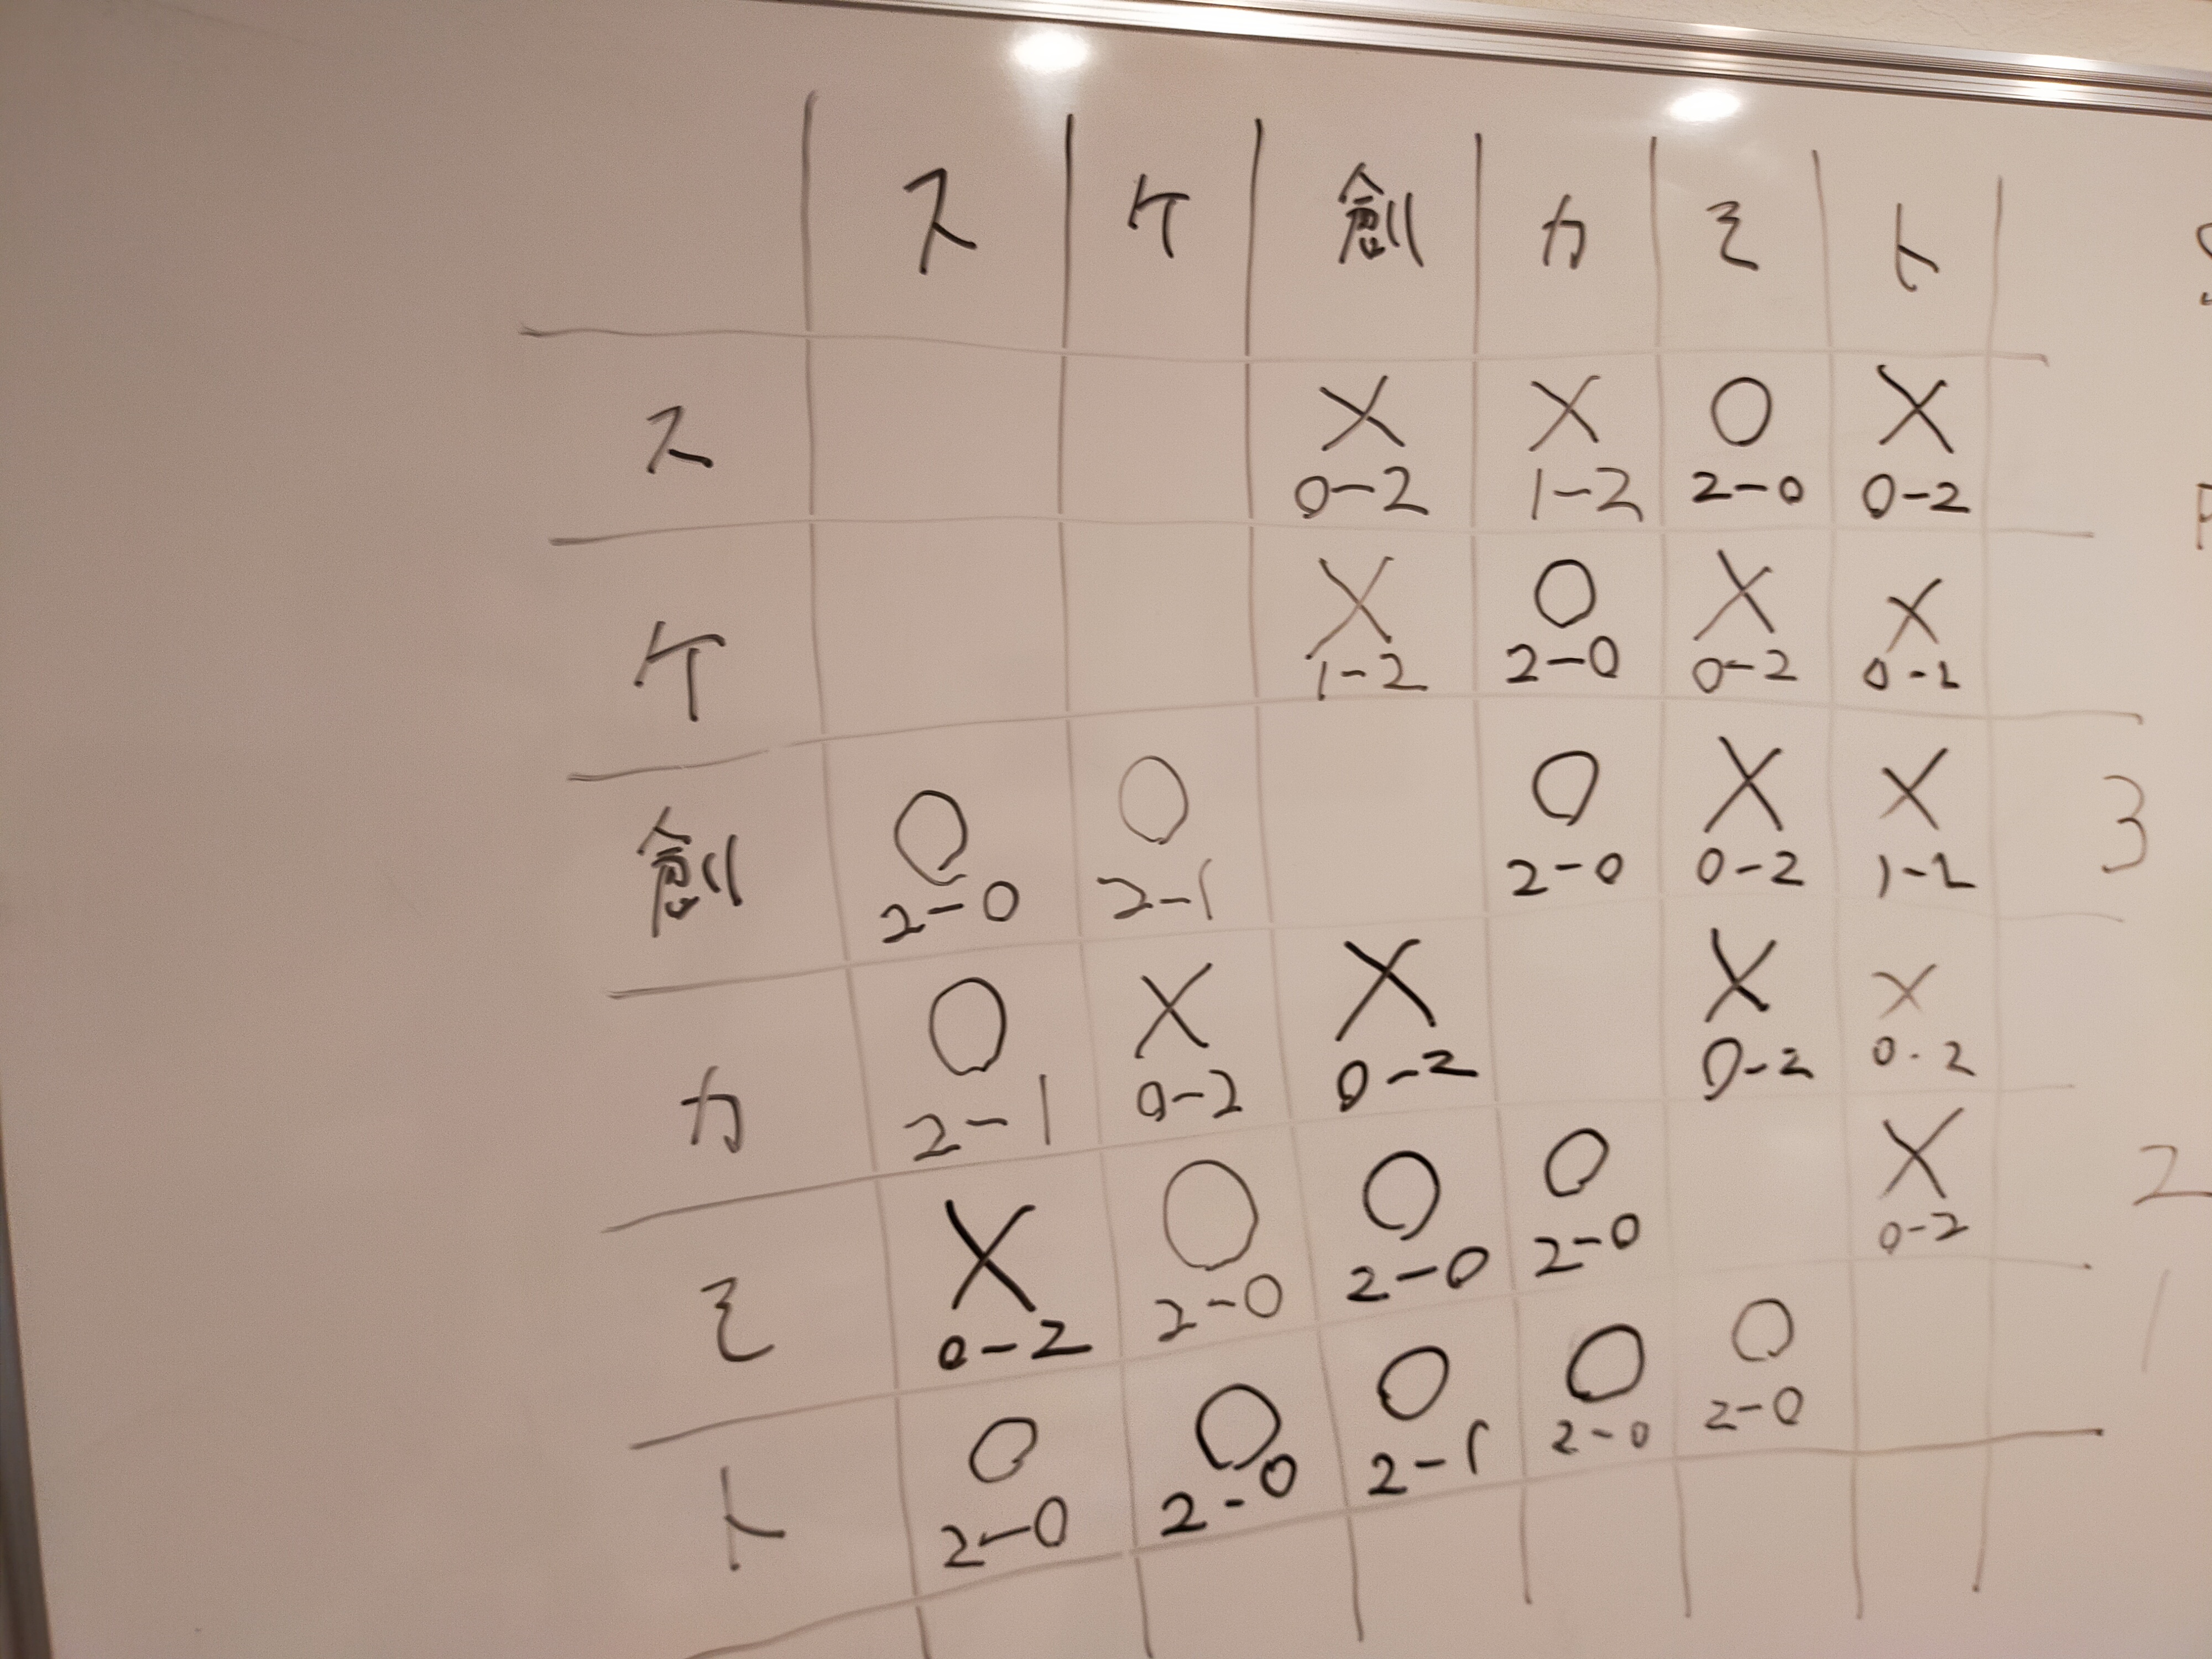 ス ケ 創 カ ミ ト
ス X X O X
0-2 1-2 2-0 0-2
ケ X O X X
1-2 2-0 0-2 0-2
創 O O O X X 3
2-0 2-1 2-0 0-2 1-2
カ O X X X X
2-1 0-2 0-2 0-2 0-2
ミ X O O O X 2
0-2 2-0 2-0 2-0 0-2
ト O O O O O 1
2-0 2-0 2-1 2-0 2-0